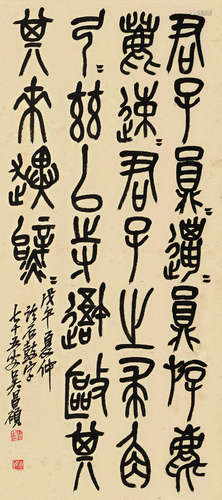 君子員邋＝員斿麀
鹿速＝君子之求角
弓＝茲以寺𨖍敺其
其來趩＝
戊午夏仲
石鼓字
七十五叟吳昌碩